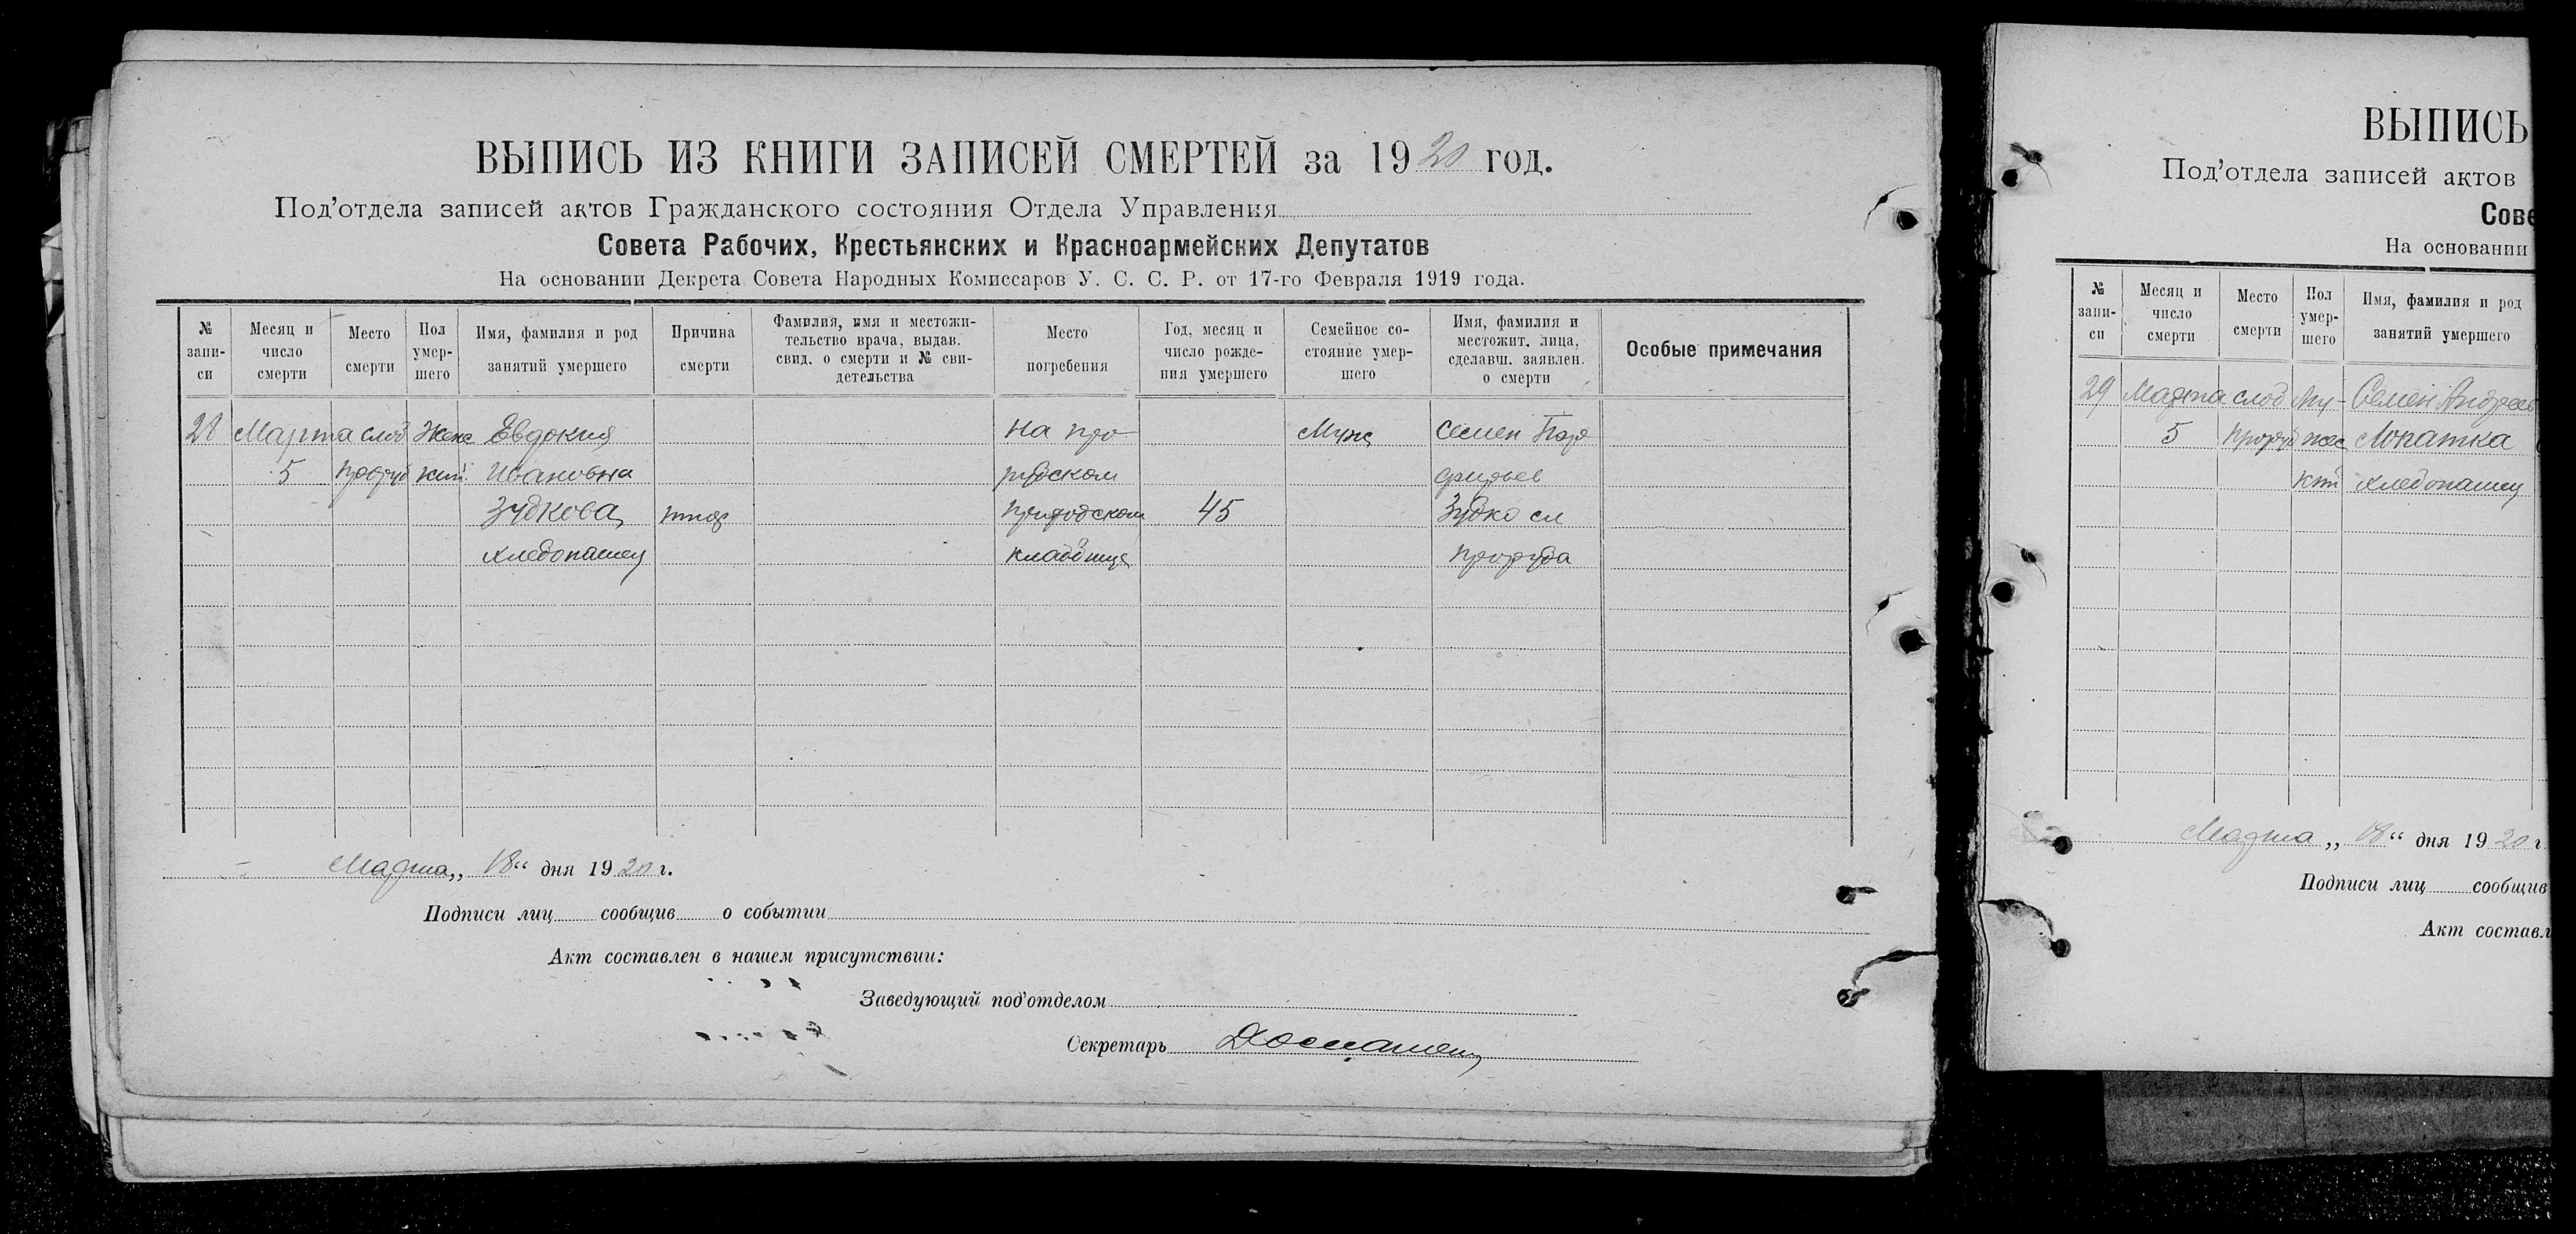 ВЫПИСЬ ИЗ КНИГИ ЗАПИСЕЙ СМЕРТЕЙ за 1920 год.
Под'отдела записей актов Гражданского состояния Отдела Управления
Совета Рабочих, Крестьянских и Красноармейских Депутатов
На основании Декрета Совета Народных Комиссаров У. С. С. Р. от 17-го Февраля 1919 года.
№ запи-си
Месяц и число смерти
Место смерти
Пол умер-шего
Имя, фамилия и род занятий умершего
Причина смерти
Фамилия, имя и местожи-тельство врача, выдав. свид. о смерти и № сви-детельства
Место погребения
Год, месяц и число рожде-ния умершего
Семейное со-стояние умер-шего
Имя, фамилия и местожит. лица, сделавш. заявлен. о смерти
Особые примечания
28 Марта слоб Женс Евдокия На про Семен
5 кий Ивановна рубском
Зубкова приходском 45 Зубко сл
хлебопашец кладбище Проруба
Марта „ 18 “ дня 1920 г.
Подписи лиц сообщив о событии
Акт составлен в нашем присутствии:
Заведующий под'отделом
Секретарь
ВЫПИСЬ
Под'отдела записей актов
Сове
На основании
№ запи-си
Месяц и число смерти
Место смерти
Пол умер-шего
Имя, фамилия и род занятий умершего
29 Марта слоб Му- Семен Андреев
5 жес Лопатка
кий хлебопашец
Марта „ 18 “ дня 1920 г
Подписи лиц сообщив
Акт составл